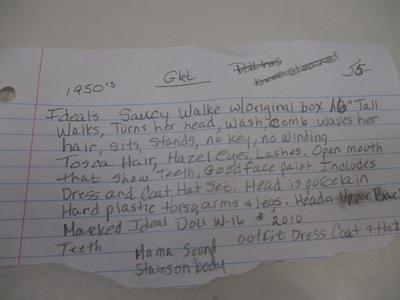 1950's Gkt Doll has
Ideals Saucy Walke w/original box 16" Tall
Walks, Turns her head, Wash, Comb waves her
hair, sits, Stands, no key, no winding
Tosca Hair, Hazel eyes, Lashes. Open mouth
that show Teeth, Good face paint. Includes
Dress and Coat Hat Set. Head is porcelain
Hard plastic torso, arms & legs. Head & Upper Back
Marked Ideal Doll W-16 * 2010
Teeth Mama Sound outfit Dress Coat & Hat
Stains on body